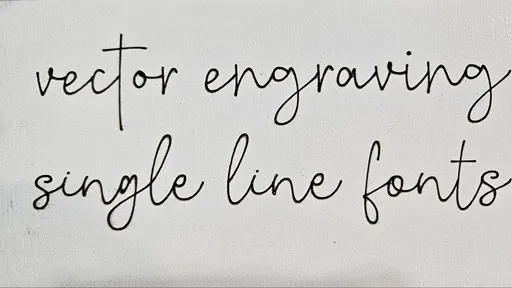 vector engraving
single line fonts